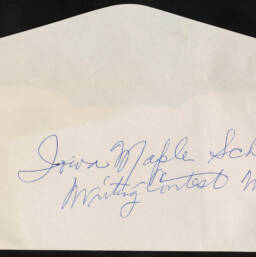 Iowa Maple Sch
Writing Contest W